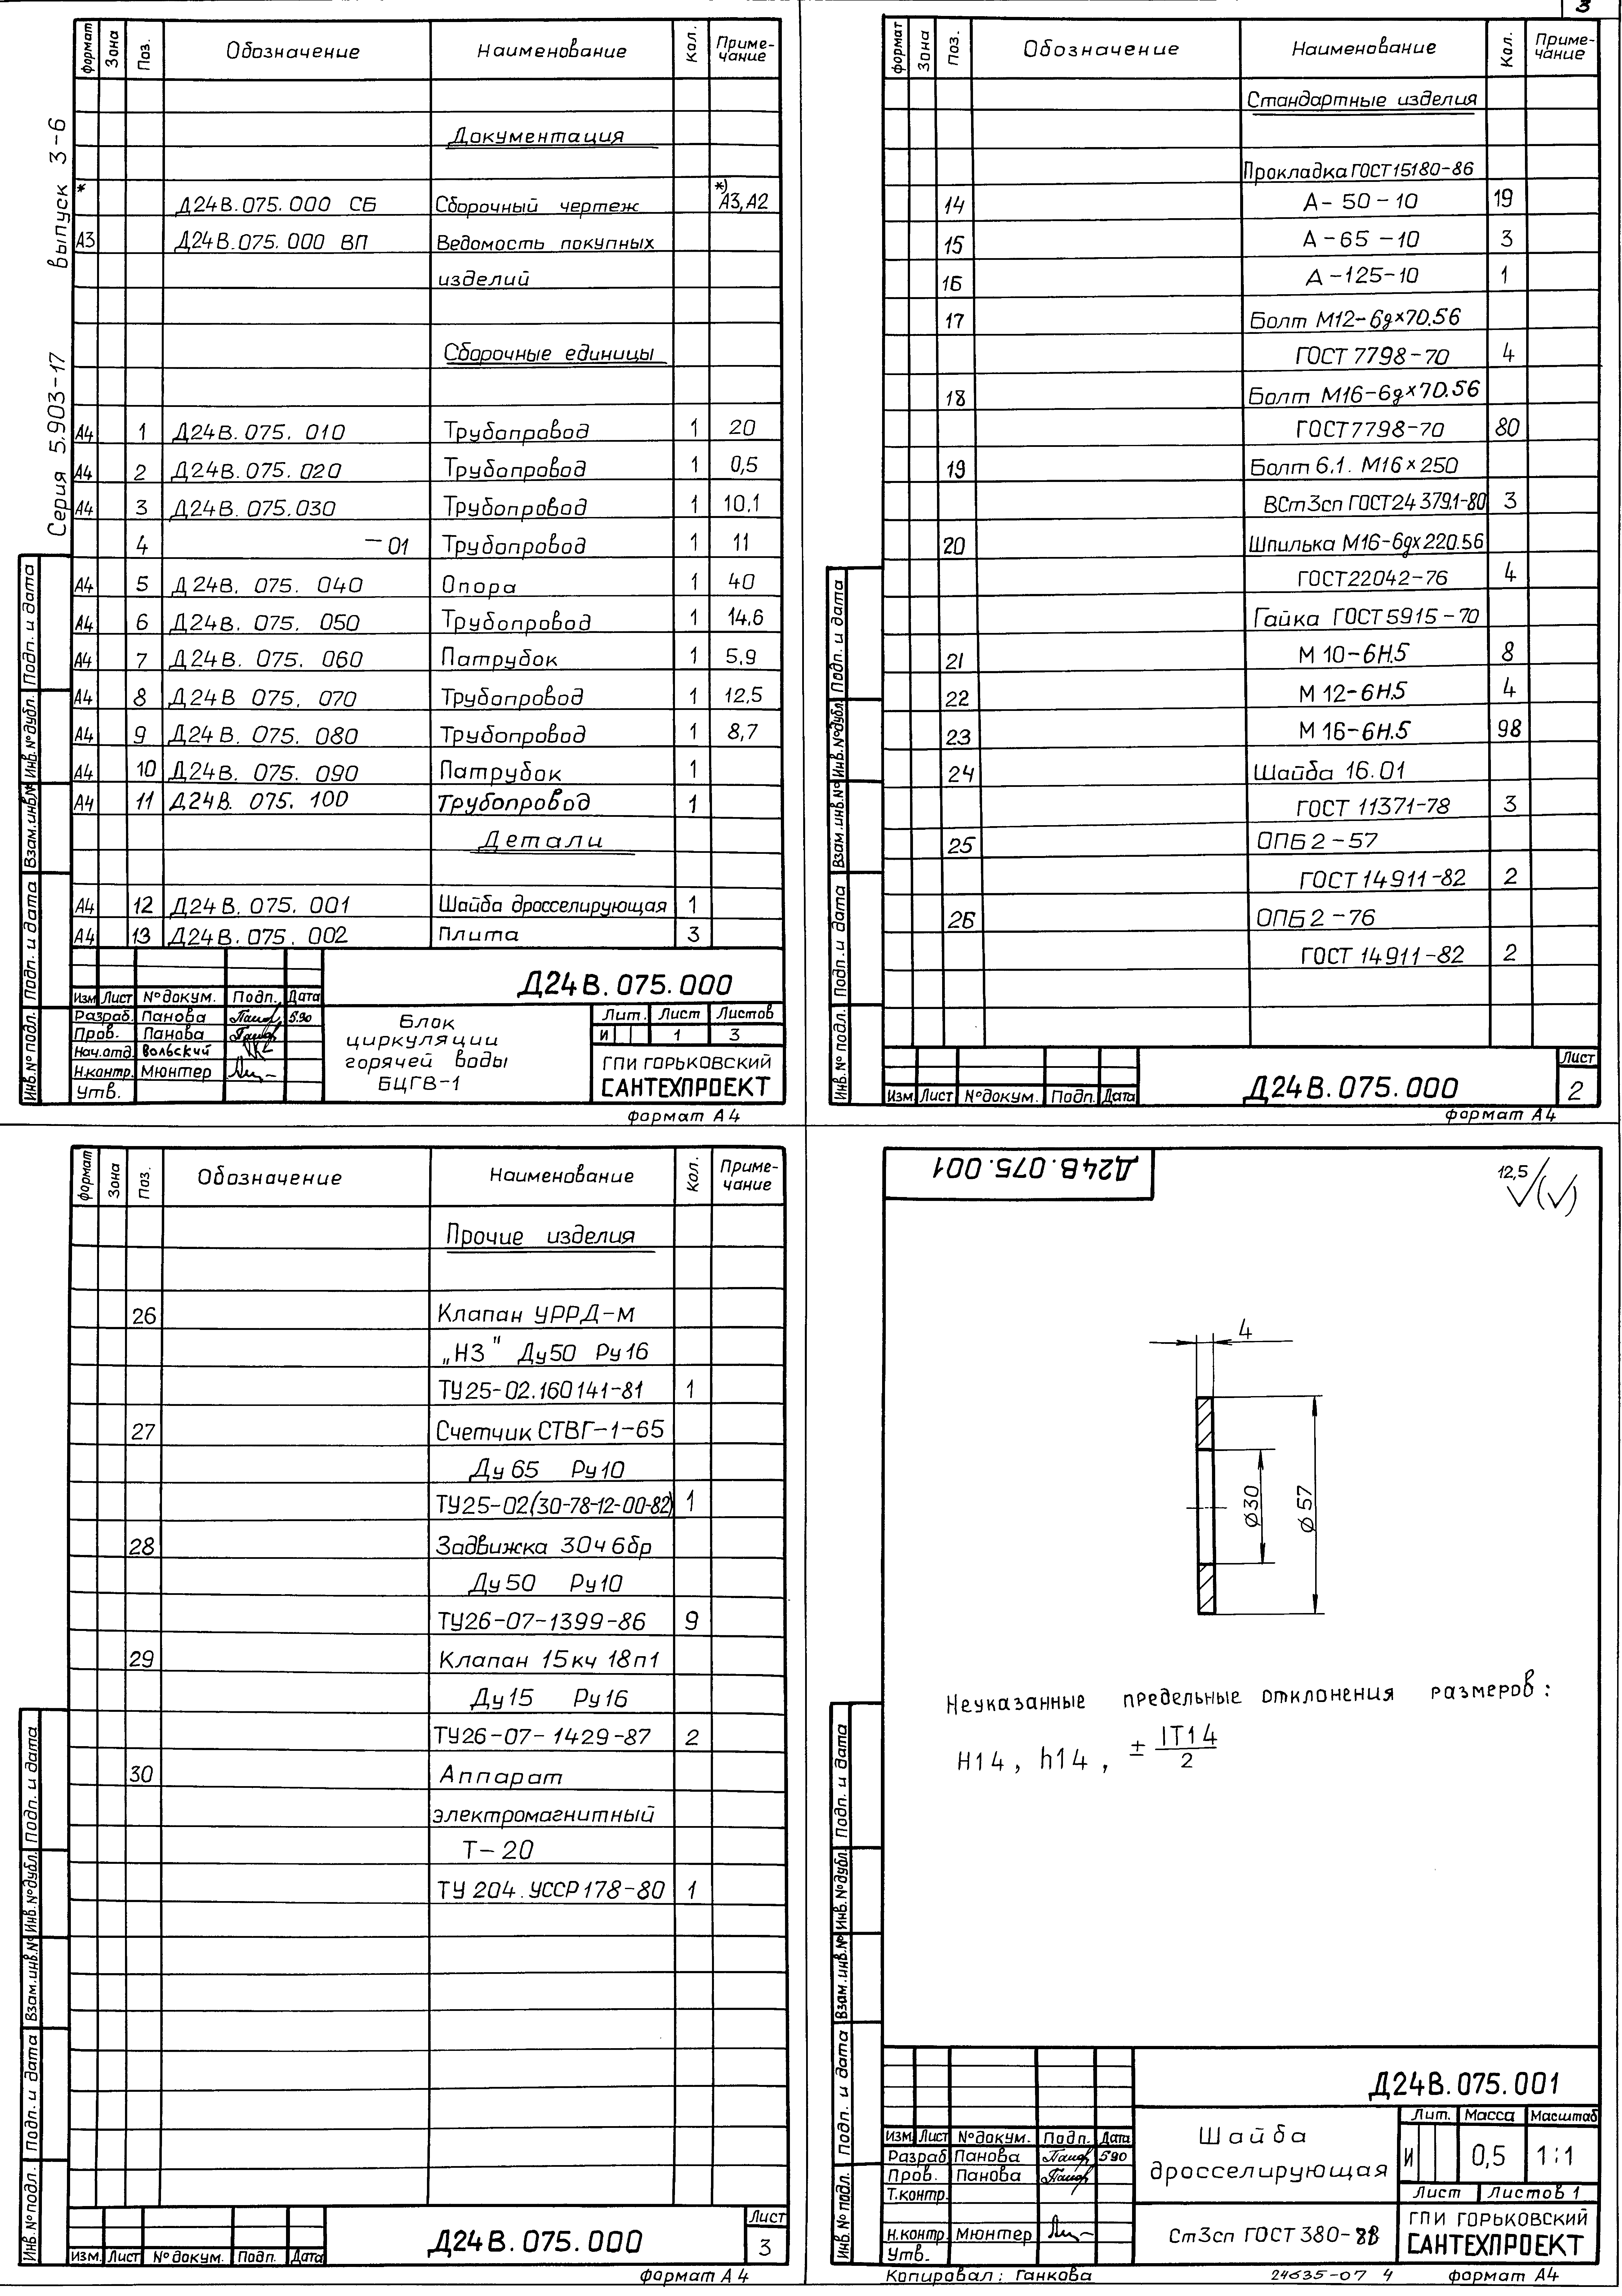 3
Серия 5.903-17 выпуск 3-6
формат Зона Поз. Обозначение Наименование Кол. Приме-чание
Документация
* Д24В.075.000 СБ Сборочный чертеж *) А3,А2
А3 Д24В.075.000 ВП Ведомость покупных
изделий
Сборочные единицы
А4 1 Д24В.075.010 Трубопровод 1 20
А4 2 Д24В.075.020 Трубопровод 1 0,5
А4 3 Д24В.075.030 Трубопровод 1 10,1
4 -01 Трубопровод 1 11
А4 5 Д24В.075.040 Опора 1 40
А4 6 Д24В.075.050 Трубопровод 1 14,6
А4 7 Д24В.075.060 Патрубок 1 5,9
А4 8 Д24В 075.070 Трубопровод 1 12,5
А4 9 Д24В.075.080 Трубопровод 1 8,7
А4 10 Д24В.075.090 Патрубок 1
А4 11 Д24В.075.100 Трубопровод 1
Детали
А4 12 Д24В.075.001 Шайба дросселирующая 1
А4 13 Д24В.075.002 Плита 3
Инв.№ подл. Подп. и дата Взам.инв.№ Инв.№дубл. Подп. и дата
Д24В.075.000
Изм Лист №докум. Подп. Дата
Разраб. Панова 5.90
Пров. Панова
Нач.отд. Вольский
Н.контр. Мюнтер
Утв.
Блок
циркуляции
горячей воды
БЦГВ-1
Лит. Лист Листов
И 1 3
ГПИ ГОРЬКОВСКИЙ
САНТЕХПРОЕКТ
формат А4
формат Зона Поз. Обозначение Наименование Кол. Приме-чание
Стандартные изделия
Прокладка ГОСТ15180-86
14 А-50-10 19
15 А-65-10 3
16 А-125-10 1
17 Болт М12-6gх70.56
ГОСТ 7798-70 4
18 Болт М16-6gх70.56
ГОСТ7798-70 80
19 Болт 6.1. М16х250
ВСт3сп ГОСТ24379.1-80 3
20 Шпилька М16-6gх220.56
ГОСТ22042-76 4
Гайка ГОСТ5915-70
21 М10-6Н.5 8
22 М12-6Н.5 4
23 М16-6Н.5 98
24 Шайба 16.01
ГОСТ 11371-78 3
25 ОПБ2-57
ГОСТ14911-82 2
26 ОПБ2-76
ГОСТ 14911-82 2
Инв.№ подл. Подп. и дата Взам.инв.№ Инв.№дубл. Подп. и дата
Изм Лист №докум. Подп. Дата
Д24В.075.000
Лист
2
формат А4
формат Зона Поз. Обозначение Наименование Кол. Приме-чание
Прочие изделия
26 Клапан УРРД-М
„НЗ" Ду50 Ру16
ТУ25-02.160141-81 1
27 Счетчик СТВГ-1-65
Ду65 Ру10
ТУ25-02(30-78-12-00-82) 1
28 Задвижка 30ч6бр
Ду50 Ру10
ТУ26-07-1399-86 9
29 Клапан 15кч 18п1
Ду15 Ру16
ТУ26-07-1429-87 2
30 Аппарат
электромагнитный
Т-20
ТУ 204.УССР178-80 1
Инв.№подл. Подп. и дата Взам.инв.№ Инв.№дубл. Подп. и дата
Изм. Лист №докум. Подп. Дата
Д24В.075.000
Лист
3
формат А4
Д24В.075.001
12,5
4
Ø30
Ø57
Неуказанные предельные отклонения размеров:
Н14, h14, ± IT14/2
Инв.№ подл. Подп. и дата Взам.инв.№ Инв.№дубл. Подп. и дата
Д24В.075.001
Изм. Лист №докум. Подп. Дата
Разраб Панова 5.90
Пров. Панова
Т.контр.
Н.контр. Мюнтер
Утв.
Шайба
дросселирующая
Лит. Масса Масштаб
И 0,5 1:1
Лист Листов 1
Ст3сп ГОСТ380-88
ГПИ ГОРЬКОВСКИЙ
САНТЕХПРОЕКТ
Копировал: Ганкова 24635-07 4 формат А4